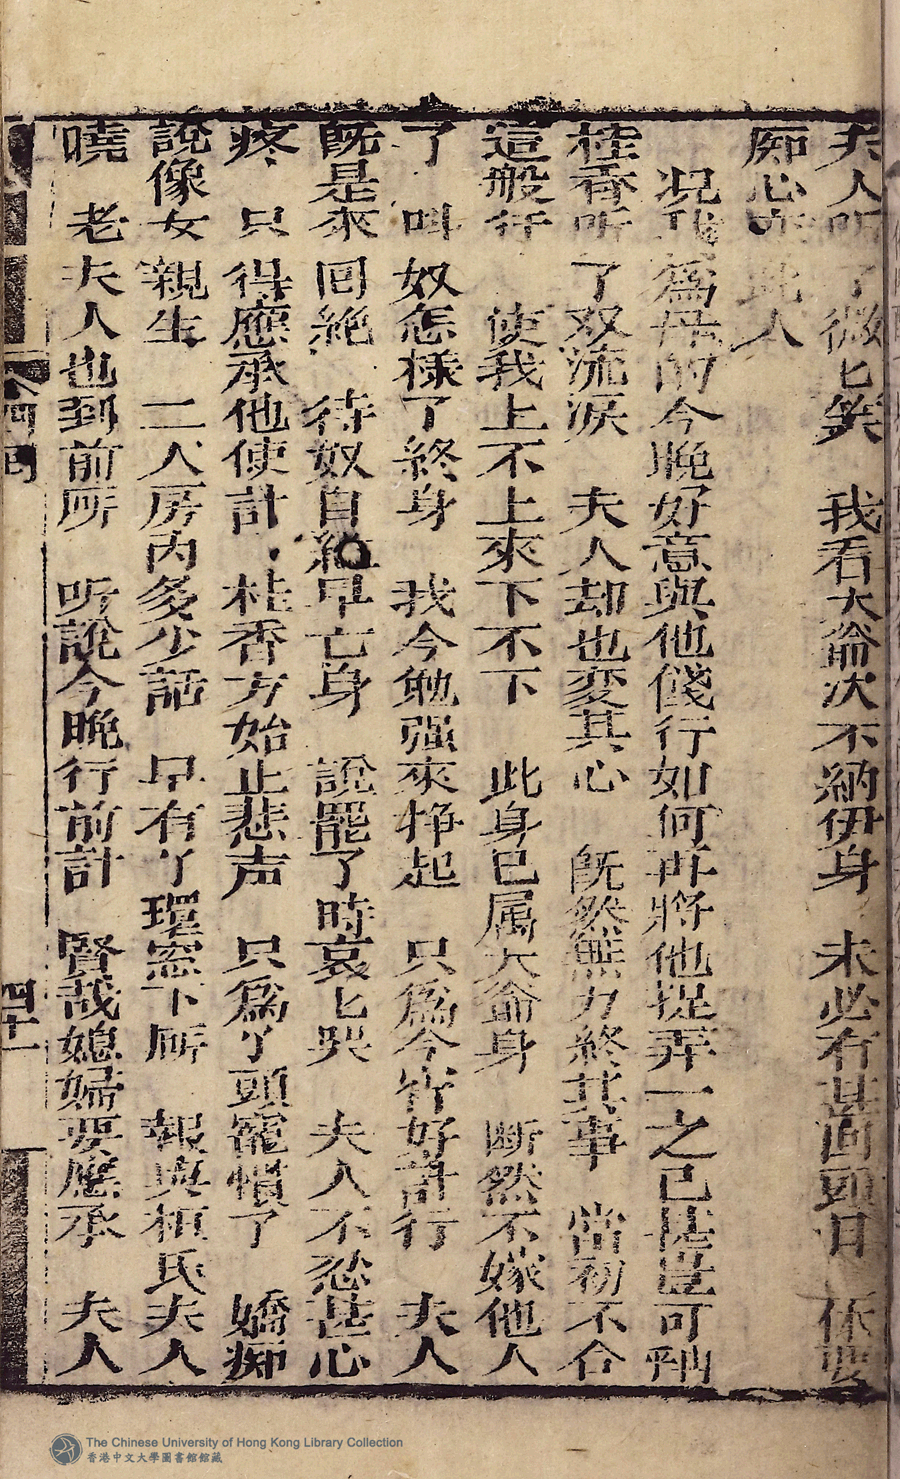 夫人听了微匕笑　我看大爺决不納伊身　未必有甚回頭日　休要
痴心　此人
况我爲母的今晚好意與他餞行如何再將他捉弄一之已甚豈可再
桂香听了双流淚　夫人却也変其心　既然無力終其事　當初不合
這般行　使我上不上來下不下　此身已属大爺身　断然不嫁他人
了　叫奴怎樣了終身　我今勉强來挣起　只爲今宵好計行　夫人
既是來回絶　待奴自經早亡身　說罷了時哀匕哭　夫人不忿甚心
疼　只得應承他使計　桂香方始止悲声　只爲丫頭寵慣了　嬌痴
說像女親生　二人房内多少話　早有丫環窓下㕔　報與桓氏夫人
曉　老夫人也到前㕔　听說今晚行前計　賢哉媳婦要應承　夫人
四十二
The Chinese University of Hong Kong Library Collection
香港中文大學圖書館館藏